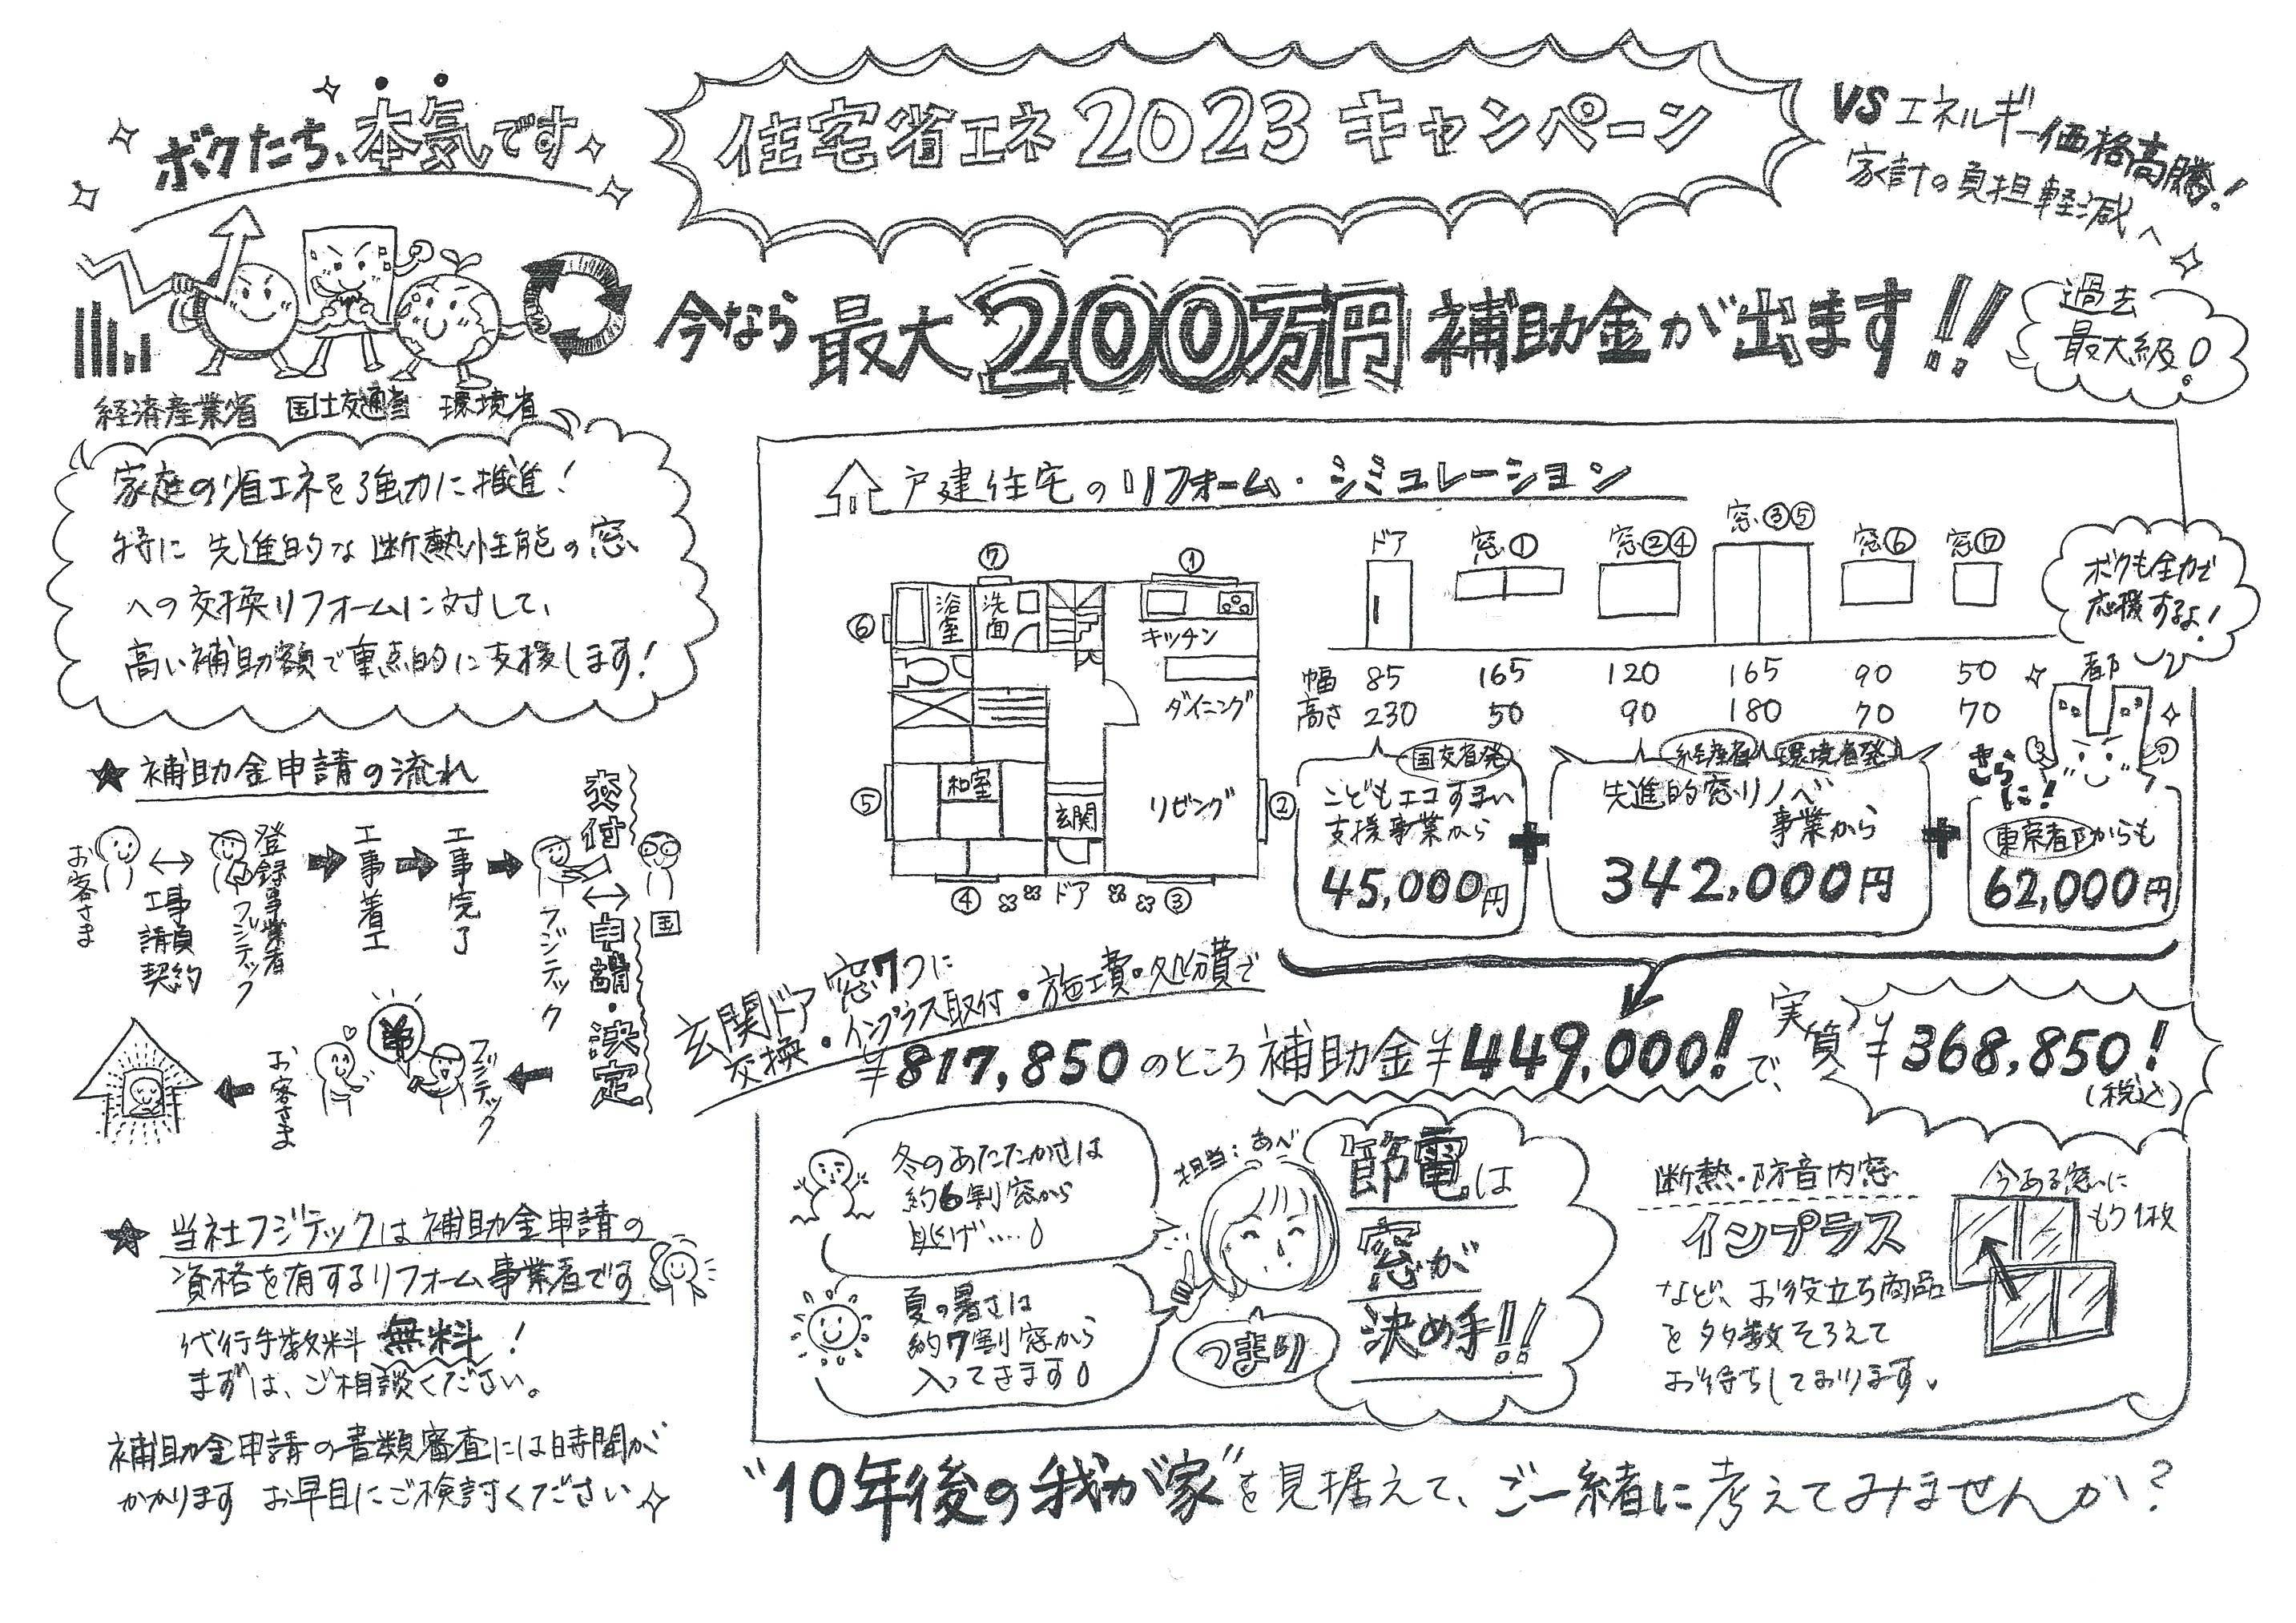 ボクたち、本気です
住宅省エネ2023キャンペーン
VSエネルギー価格高騰!
家計の負担軽減へ
今なら最大200万円補助金が出ます!!
過去
最大級!
経済産業省 国土交通省 環境省
家庭の省エネを強力に推進!
特に先進的な断熱性能の窓
への交換リフォームに対して、
高い補助額で重点的に支援します!
★補助金申請の流れ
お客さま
↔
工事請負契約
登録事業者
フジテック
➡
工事着工
➡
工事完了
➡
フジテック
↔
交付申請・決定
国
フジテック
¥
お客さま
★当社フジテックは補助金申請の
資格を有するリフォーム事業者です
代行手数料無料!
まずは、ご相談ください。
補助金申請の書類審査には時間が
かかります お早目にご検討ください
戸建住宅のリフォーム・シミュレーション
⑦ ①
⑥ 浴室 洗面 キッチン
ダイニング
⑤ 和室 玄関 リビング ②
④ ドア ③
ドア 窓① 窓②④ 窓③⑤ 窓⑥ 窓⑦
幅 85 165 120 165 90 50
高さ 230 50 90 180 70 70
ボクも全力で
応援するよ!
都
国交省発
こどもエコすまい
支援事業から
45,000円
+
経産省 環境省発
先進的窓リノベ
事業から
342,000円
+
さらに!
東京都からも
62,000円
玄関ドア 窓7つに
交換・インプラス取付・施工費・処分費で
¥817,850のところ補助金¥449,000!で、実質¥368,850!
(税込)
冬のあたたかさは
約6割窓から
逃げ....
夏の暑さは
約7割窓から
入ってきます
担当:あべ
つまり
節電は
窓が
決め手!!
断熱・防音内窓
インプラス
など、お役立ち商品
を多数そろえて
お待ちしております。
今ある窓に
もう1枚
"10年後の我が家"を見据えて、ご一緒に考えてみませんか?